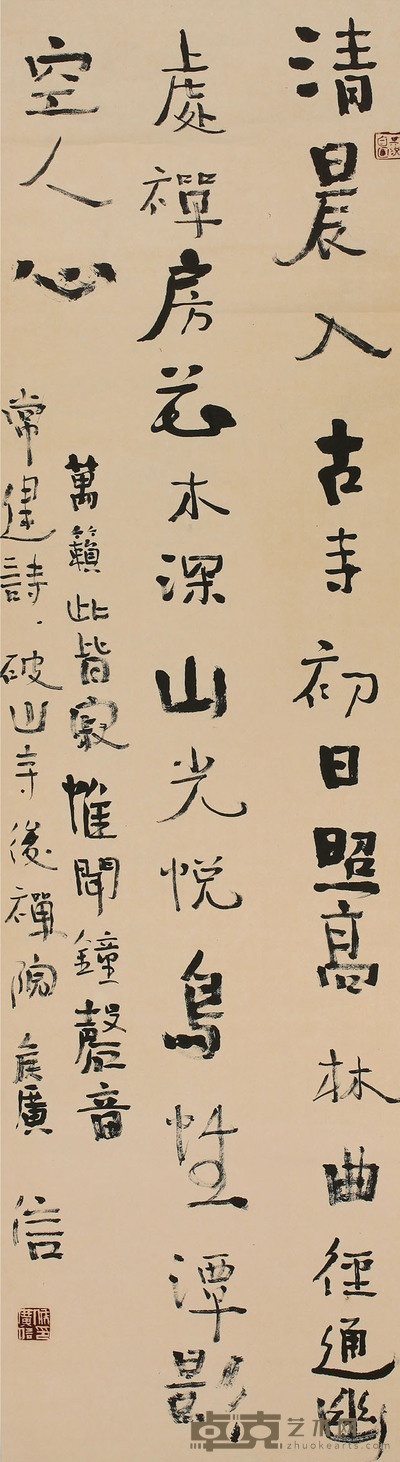 清晨入古寺初日照高林曲徑通幽
處禪房花木深山光悦鳥性潭影
空人心
萬籟此皆寂惟聞鐘磬音
常建詩·破山寺後禪院 侯廣信
卓克艺术网
zhuokearts.com